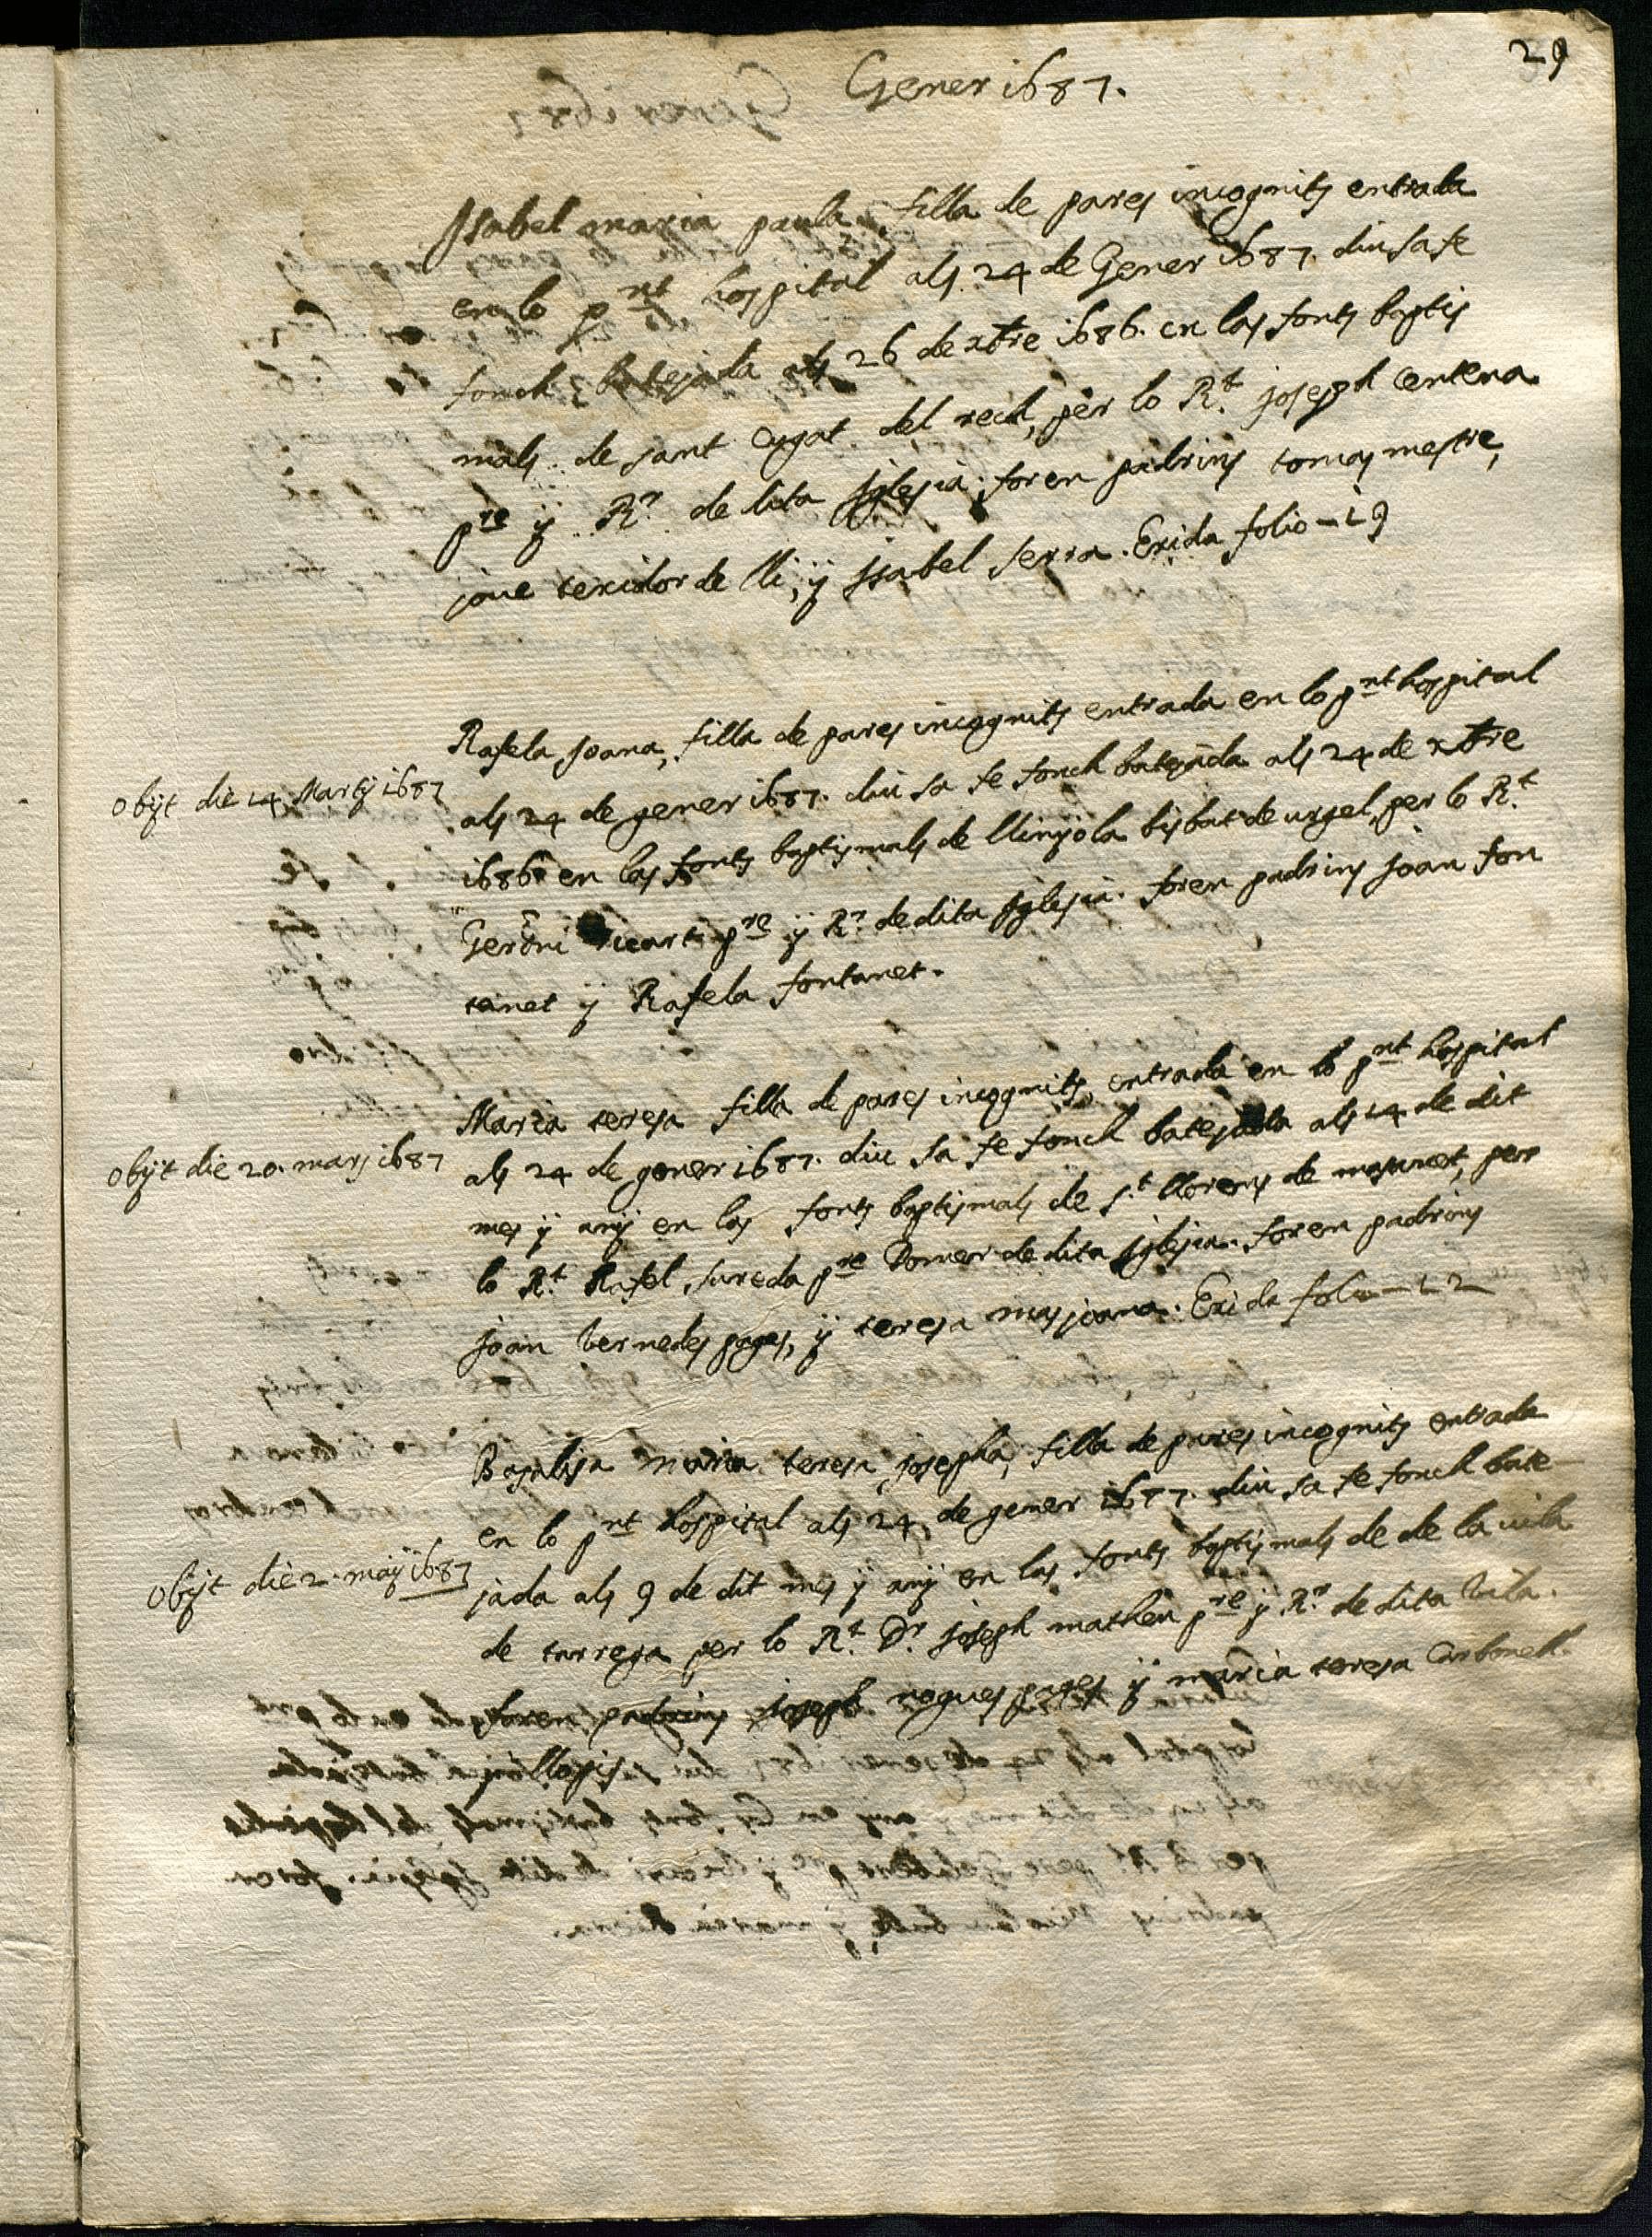 29
Gener 1687.
Isabel maria paula, filla de pares incognits entrada
en lo pnt hospital als 24 de Gener 1687. diu sa fe
fonch batejada als 26 de xbre 1686. en las fonts baptis
mals de sant Cugat del rech, per lo Rt. joseph Centena
pre ÿ Rr. de dita Iglesia, foren padrins tomas mestre,
jove texidor de lli, ÿ Isabel serra. Exida folio - 19
Rafela Joana, filla de pares incognits entrada en lo pnt hospital
obijt die 14 Martij 1687
als 24 de gener 1687. diu sa fe fonch batejada als 24 de xbre
1686 en las fonts baptismals de llinyola bisbat de urgel, per lo Rt.
Geroni ricart pre ÿ Rr. de dita Iglesia. foren padrins Joan fon
tanet ÿ Rafela fontanet.
Maria teresa filla de pares incognits, entrada en lo pnt hospital
obijt die 20. mars 1687
als 24 de gener 1687. diu sa fe fonch batejada als 14 de dit
mes ÿ anÿ en las fonts baptismals de St. llorens de , per
lo Rt. Rafel sureda pre Domer de dita Iglesia. foren padrins
Joan vernedes pages, ÿ teresa masjoana. Exida folio - 12
Basalisa maria teresa, josepha, filla de pares incognits entrada
en lo pnt hospital als 24, de gener 1687. diu sa fe fonch bate-
obijt die 2. maÿ 1687
jada als 9 de dit mes ÿ anÿ en las fonts baptismals de de la vila
de tarrega per lo Rt. Dr. joseph matheu pre ÿ Rr. de dita vila.
foren padrins joseph nogues pages ÿ maria teresa Carbonell
ÿ llopis.